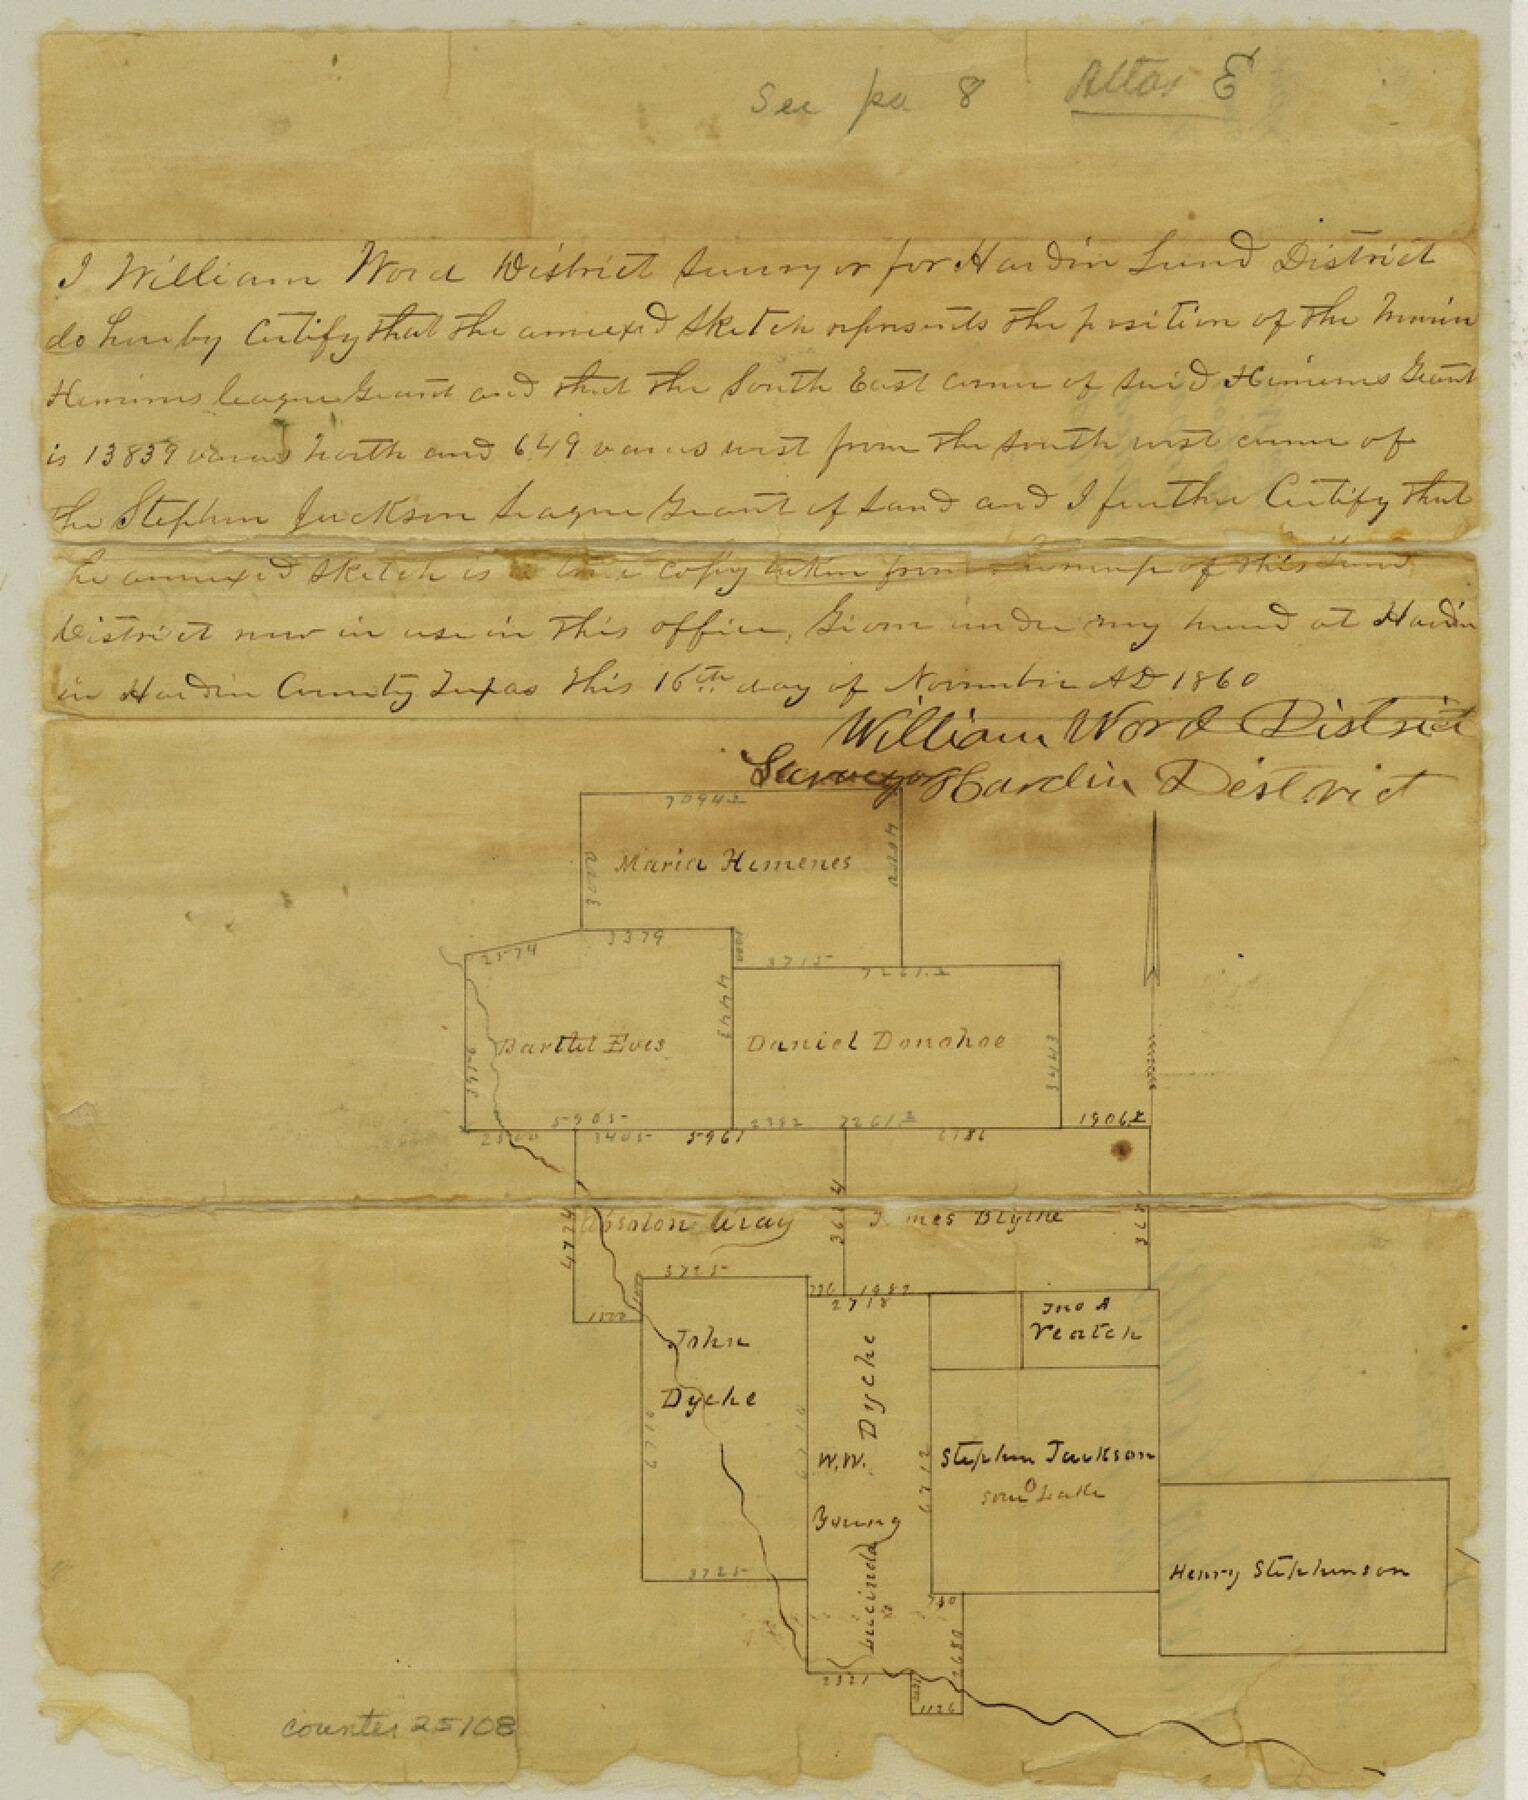 See pa 8 Atlas E
I William Word District Surveyor for Hardin Land District
do hereby Certify that the annexed Sketch represents the position of the Maria
Himines league Grant and that the South East corner of said Himenes Grant
is 13839 varas North and 649 varas west from the south west corner of
the Stephen Jackson League Grant of Land and I further Certify that
he annexed sketch is a true copy taken from map of this Land
District now in use in this office, Given under my hand at Hardin
in Hardin County Texas this 16th day of November AD 1860
William Word District
Surveyor Hardin District
7094.2
Maria Himenes
2574
3379
1000
3715
7261.2
4443
Bartlet Eves
Daniel Donahoe
3443
5905
2500
3405
5961
2392
7261.2
6786
1906.2
4724
Absolon Gray
3624
J mes Blythe
3725
1000
1500
736
1982
2718
Jno A
Veatch
John
Dyche
6710
6710
W.W.
Young
Lucinda Dyche
6712
Stephen Jackson
Sour Lake
Henry Stephenson
3725
740
2680
2321
1126
counter 25108